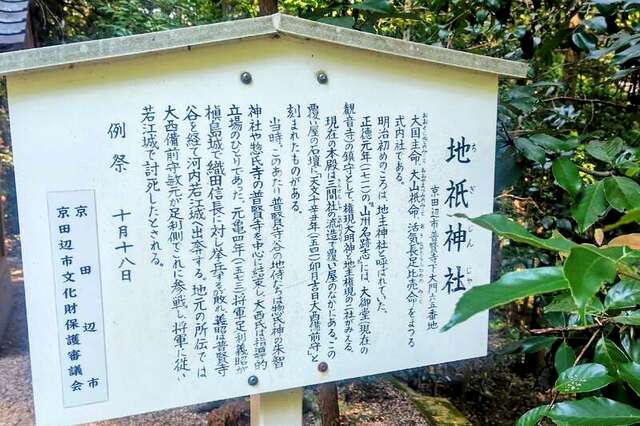 地祇神社
ちぎじんじゃ
京田辺市普賢寺下大門六五番地
大国主命、大山祇命、活気長足比売命をまつる
式内社である。
明治初めのころは、地主神社と呼ばれていた。
正徳元年(一七一一)の『山州名跡志』には、大御堂(現在の
観音寺)の鎮守として、権現大明神と地主権現の二社がみえる。
現在の本殿は三間社の流造で覆い屋の中にある。この
覆い屋の石壇に「天文十年(一五四一)卯月吉日大西備前守」と
刻まれたものがある。
当時、このあたり普賢寺谷の地侍たちは惣氏神の朱智
神社や惣氏寺の普賢寺を中心に結束し、大西氏は指導的
立場のひとりであった。元亀四年(一五七三)将軍足利義昭が
槇島城で織田信長に対し挙兵するが敗れ、義昭は普賢寺
谷を経て河内若江城へ出奔する。地元の所伝では
大西備前守敬元が足利側でこれに参戦し、将軍に従い
若江城で討死したとされる。
例祭 十月十八日
京田辺市
京田辺市文化財保護審議会